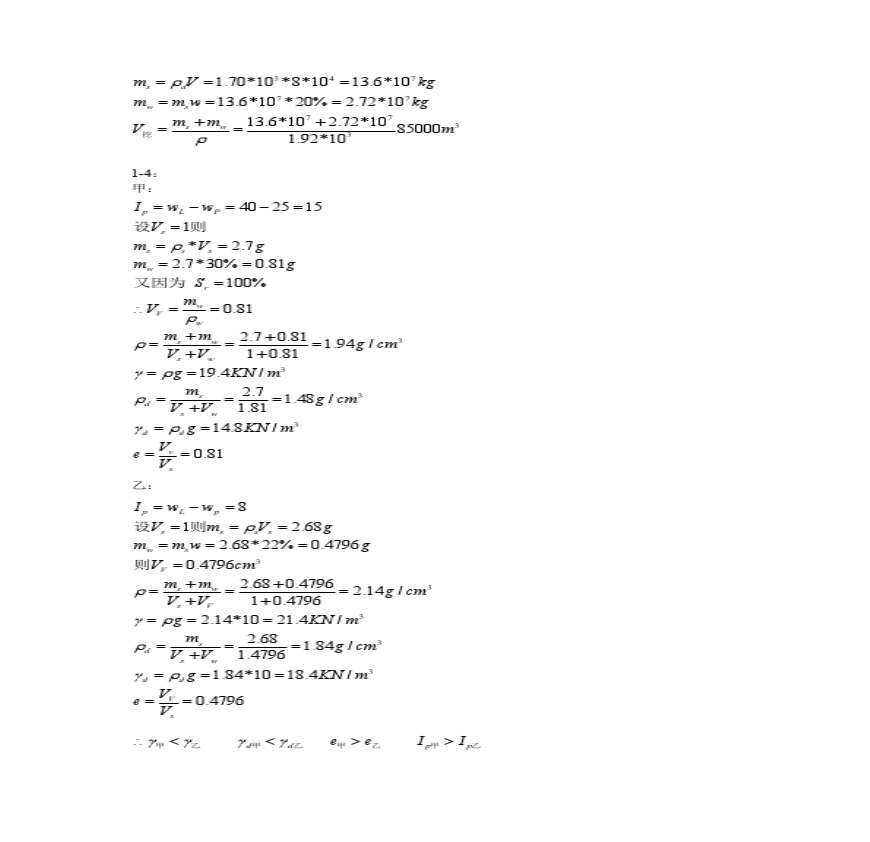 m_s = ρ_d V = 1.70*10³*8*10⁴ = 13.6*10⁷ kg
m_w = m_s w = 13.6*10⁷*20% = 2.72*10⁷ kg
V_挖 = (m_s + m_w)/ρ = (13.6*10⁷ + 2.72*10⁷)/(1.92*10³) 85000m³
1-4:
甲:
I_p = w_L − w_P = 40 − 25 = 15
设V_s = 1则
m_s = ρ_s * V_s = 2.7g
m_w = 2.7*30% = 0.81g
又因为 S_r = 100%
∴ V_V = m_w/ρ_w = 0.81
ρ = (m_s + m_w)/(V_s + V_w) = (2.7 + 0.81)/(1 + 0.81) = 1.94g / cm³
γ = ρg = 19.4KN / m³
ρ_d = m_s/(V_s + V_w) = 2.7/1.81 = 1.48g / cm³
γ_d = ρ_d g = 14.8KN / m³
e = V_v/V_s = 0.81
乙:
I_p = w_L − w_p = 8
设V_s = 1则m_s = ρ_s V_s = 2.68g
m_w = m_s w = 2.68*22% = 0.4796g
则V_V = 0.4796cm³
ρ = (m_s + m_w)/(V_s + V_V) = (2.68 + 0.4796)/(1 + 0.4796) = 2.14g / cm³
γ = ρg = 2.14*10 = 21.4KN / m³
ρ_d = m_s/(V_s + V_w) = 2.68/1.4796 = 1.84g / cm³
γ_d = ρ_d g = 1.84*10 = 18.4KN / m³
e = V_V/V_s = 0.4796
∴ γ_甲 < γ_乙 γ_d甲 < γ_d乙 e_甲 > e_乙 I_p甲 > I_p乙